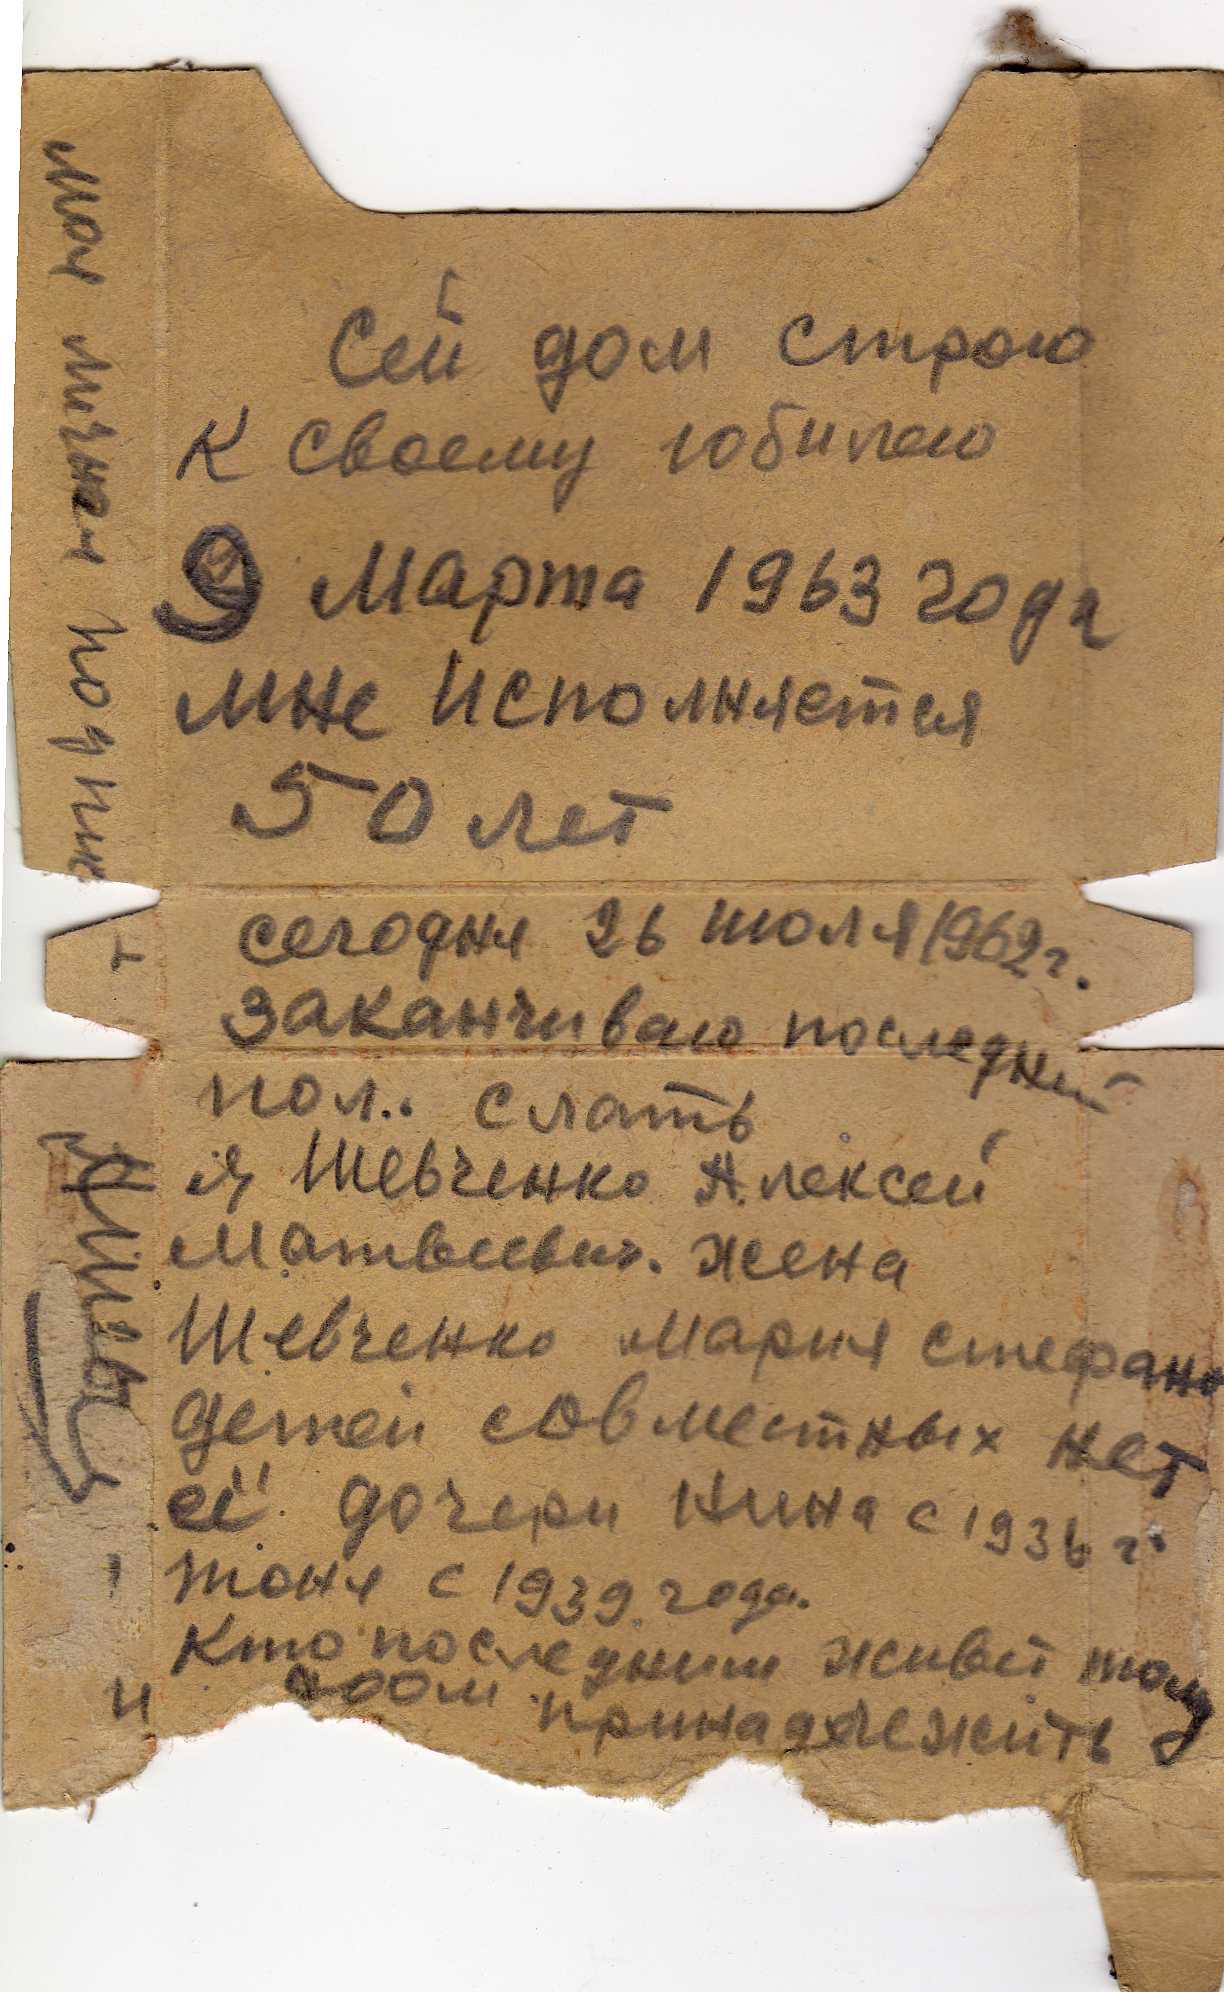 Сей дом строю
к своему юбилею
9 марта 1963 года
мне исполняется
50 лет
сегодня 26 июля 1962 г.
заканчиваю последний
пол.. слать
я Шевченко Алексей
Матвеевич. жена
Шевченко Мария Стефано
детей совместных нет
её дочери Нина с 1936 г.
Тоня с 1939 года.
кто последним живет тому
дом принадлежить
моя личная подпись